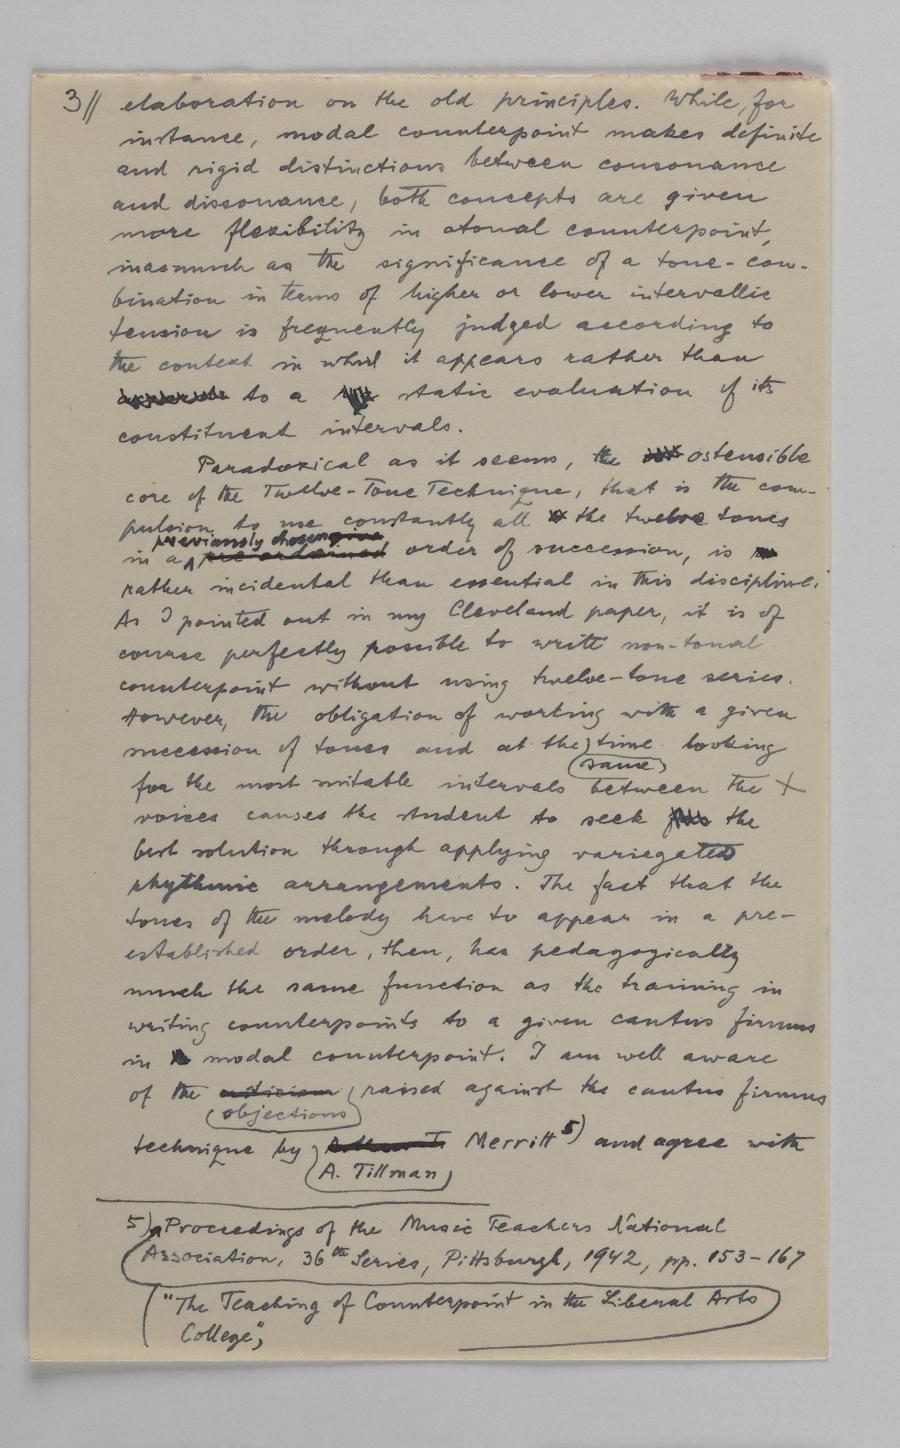 3//
elaboration on the old principles. While, for
instance, modal counterpoint makes definite
and rigid distinctions between consonance
and dissonance, both concepts are given
more flexibility in atonal counterpoint,
inasmuch as the significance of a tone-com-
bination in terms of higher or lower intervallic
tension is frequently judged according to
the context in which it appears rather than
to a static evaluation of its
constituent intervals.
Paradoxical as it seems, the ostensible
core of the Twelve-Tone Technique, that is the com-
pulsion to use constantly all the twelve tones
previously chosen
in a pre-ordained order of succession, is
rather incidental than essential in this discipline.
As I pointed out in my Cleveland paper, it is of
course perfectly possible to write non-tonal
counterpoint without using twelve-tone series.
However, the obligation of working with a given
succession of tones and at the time looking
same
for the most suitable intervals between the
voices causes the student to seek the
best solution through applying variegated
rhythmic arrangements. The fact that the
tones of the melody have to appear in a pre-
established order, then, has pedagogically
much the same function as the training in
writing counterpoints to a given cantus firmus
in modal counterpoint. I am well aware
of the criticism raised against the cantus firmus
objections
technique by Merritt 5) and agree with
A. Tillman
5) Proceedings of the Music Teachers National
Association, 36th Series, Pittsburgh, 1942, pp. 153-167
"The Teaching of Counterpoint in the Liberal Arts
College",